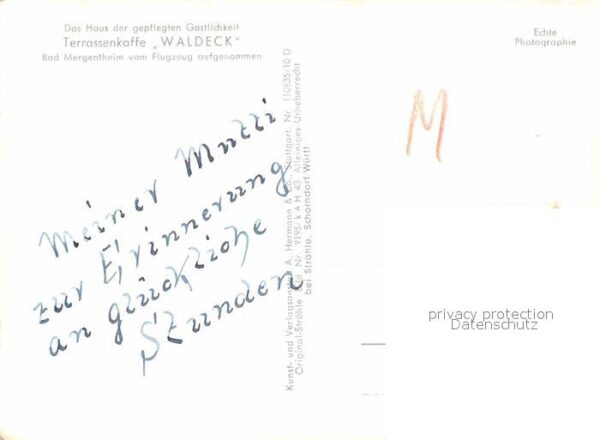 Das Haus der gepflegten Gastlichkeit
Terrassenkaffe „WALDECK"
Bad Mergentheim vom Flugzeug aufgenommen
Echte
Photographie
M
Meiner Mutti
zur Erinnerung
an glückliche
Stunden
Kunst- und Verlagsanstalt A. Hermann & Co., Stuttgart, Nr. 110835/10 D
Original-Strähle Bild Nr. 9195/k A H 43 Alleiniges Urheberrecht
bei Strähle, Schorndorf Württ
privacy protection
Datenschutz